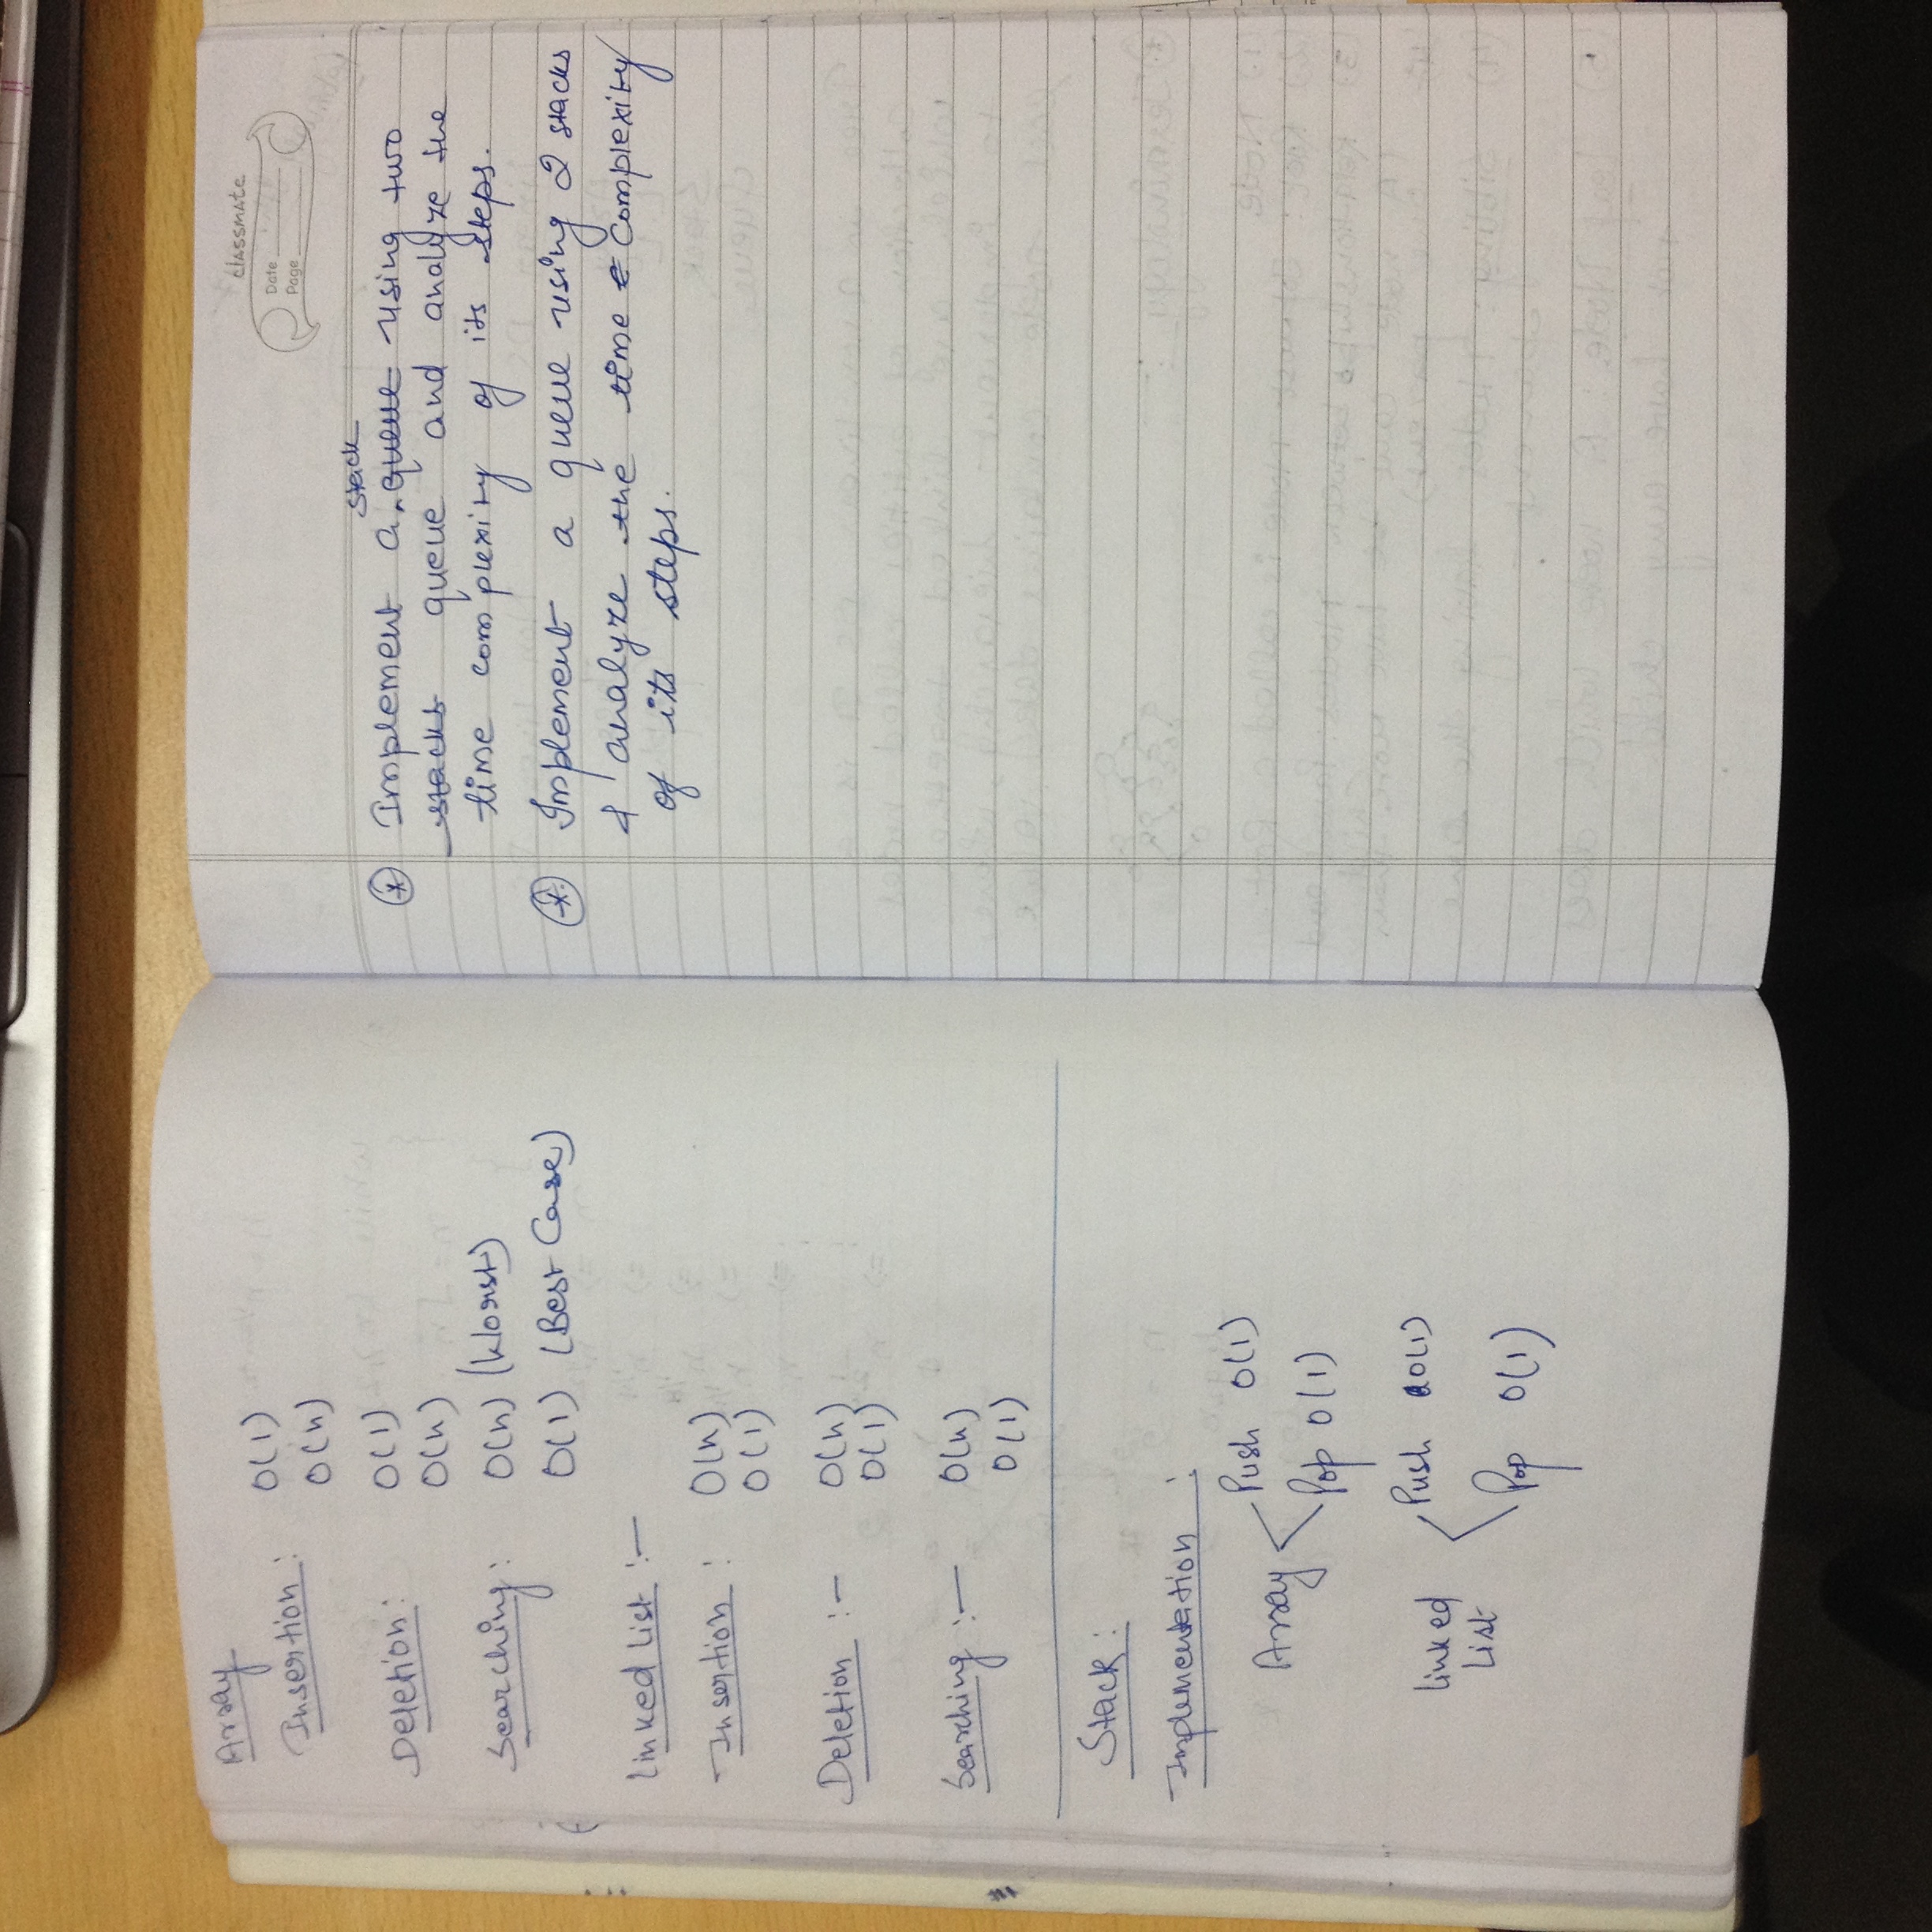 Array
O(1)
Insertion : O(n)
Deletion : O(1)
O(n)
Searching : O(n) (Worst)
O(1) (Best Case)
Linked List :—
Insertion : O(n)
O(1)
Deletion :— O(n)
O(1)
Searching :— O(n)
O(1)
Stack :
Implementation :
Array Push O(1)
Pop O(1)
Linked Push O(1)
List Pop O(1)
classmate
Date
Page
stack
* Implement a queue using two
stacks queue and analyze the
time complexity of its steps.
* Implement a queue using 2 stacks
& analyze the time Complexity
of its steps.